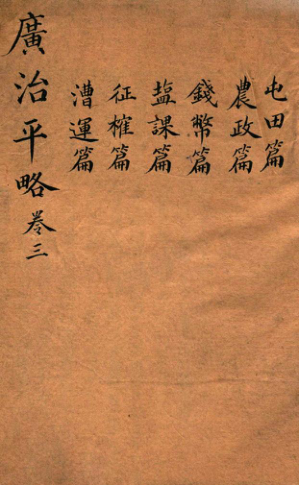 屯田篇
農政篇
錢幣篇
塩課篇
征榷篇
漕運篇
廣治平略卷三